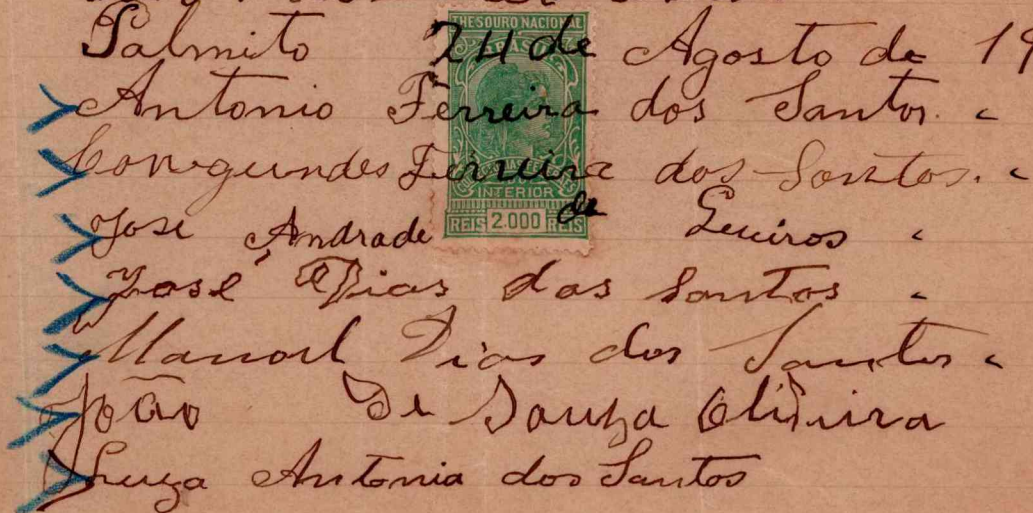 Palmito 24 de Agosto de 19
THESOURO NACIONAL
BRASIL
INTERIOR
REIS 2.000 REIS
Antonio Ferreira dos Santos.
Ferreira dos Santos.
José Andrade de
José Dias dos Santos
Manoel Dias dos Santos
João de Souza Oliveira
Antonia dos Santos